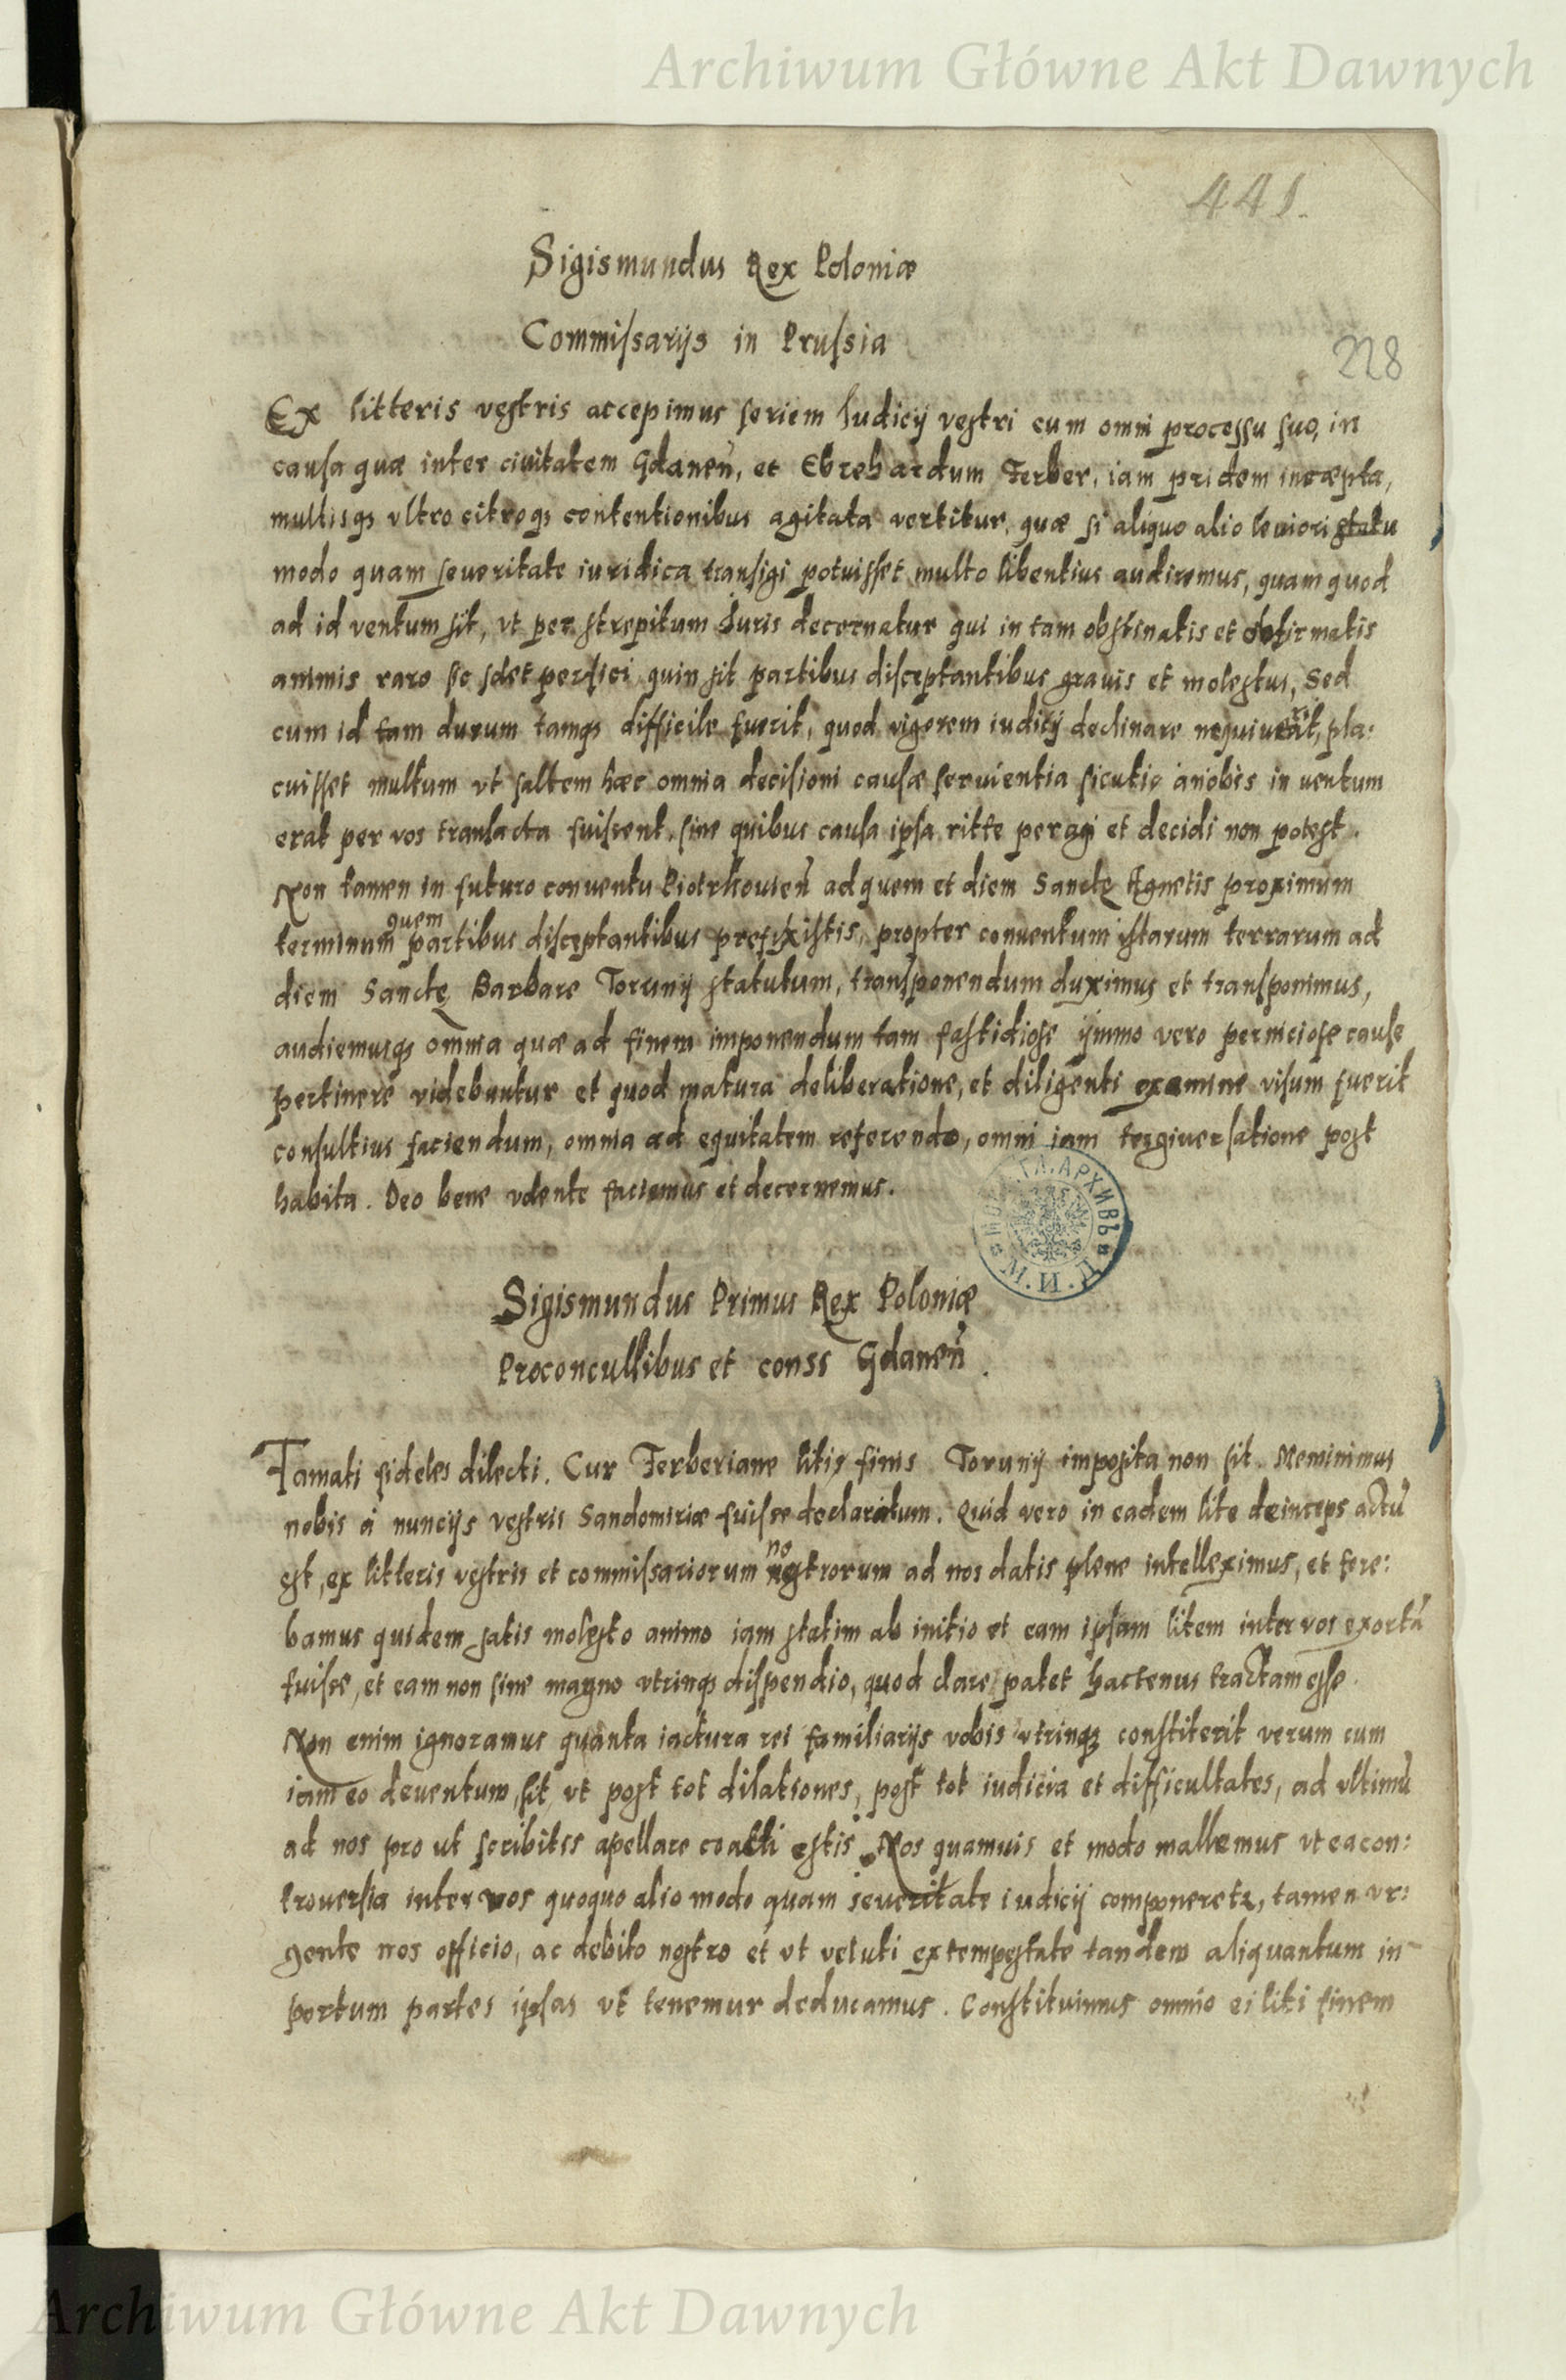 Archiwum Główne Akt Dawnych
441.
Sigismundus Rex Poloniæ
Commiſsarijs in Pruſsia
228
Ex litteris veſtris accepimus ſeriem Iudicij veſtri cum omni proceſſu ſuo, in
cauſa quæ inter ciuitatem Gdaneñ, et Ebrehardum Ferber, iam pridem incæpta,
multisqꝫ vltro citroqꝫ contentionibus agitata vertitur, quæ ſi aliquo alio leuiori ſtatu
modo quam ſeueritate iuridica tranſigi potuiſſet multo libentius audiremus, quam quod
ad id ventum ſit, vt per ſtrepitum Iuris decernatur qui in tam obſtinatis et obfirmatis
animis raro ſic ſolet perfici quin ſit partibus diſceptantibus grauis et moleſtus, Sed
cum id tam durum tamqꝫ difficile fuerit, quod vigorem iudicij declinare nequiuerit, pla:
cuiſſet multum vt ſaltem hæc omnia deciſioni cauſæ ſeruientia ſicutic ànobis in uentum
erat per vos tranſacta fuiſsent, ſine quibus cauſa ipſa ritte peragi et decidi non poteſt.
Non tamen in futuro conuentu Piotrkouieñ ad quem et diem Sanctę Agnetis proximum
terminum quem partibus diſceptantibus prefixiſtis, propter conuentum iſtarum terrarum ad
diem Sanctę Barbare Torunij ſtatutum, tranſponendum duximus et tranſponimus,
audiemusqꝫ omnia quæ ad finem imponendum tam faſtidioſe ijmmo vero pernicioſe cauſe
pertinere videbuntur et quod matura deliberatione, et diligenti examine viſum fuerit
conſultius faciendum, omnia ad equitatem referendo, omni iam tergiuerſatione poſt
habita. Deo bene vdente faciemus et decernemus.
Sigismundus Primus Rex Poloniæ
Proconcullibus et conss Gdaneñ.
Famati fideles dilecti. Cur Ferberiane litis finis Torunij impoſita non ſit. Meminimus
nobis à nuncijs veſtris Sandomiriæ fuiſse declaratum. Quid vero in eadem lite deinceps actũ
eſt, ex litteris veſtris et commiſsariorum noſtrorum ad nos datis plene intelleximus, et fere:
bamus quidem ſatis moleſto animo iam ſtatim ab initio et eam ipſam litem inter vos exortã
fuiſse, et eam non ſine magno vtrinqꝫ diſpendio, quod clare patet hactenus tractam eſſe.
Non enim ignoramus quanta iactura rei familiarijs vobis vtrinqꝫ conſtiterit verum cum
iam eo deuentum ſit, vt poſt tot dilationes, poſt tot iudicia et difficultates, ad vltimũ
ad nos pro ut ſcribitis apellare coacti eſtis. Nos quamuis et modo mallemus vt ea con:
trouerſia inter vos quoquo alio modo quam ſeueritate iudicij componeretꝛ, tamen vr:
gente nos officio, ac debito noſtro et vt veluti ex tempeſtate tandem aliquantum in-
portum partes ipſas vt tenemur deducamus. Conſtituimus omnio ei liti finem
Archiwum Główne Akt Dawnych